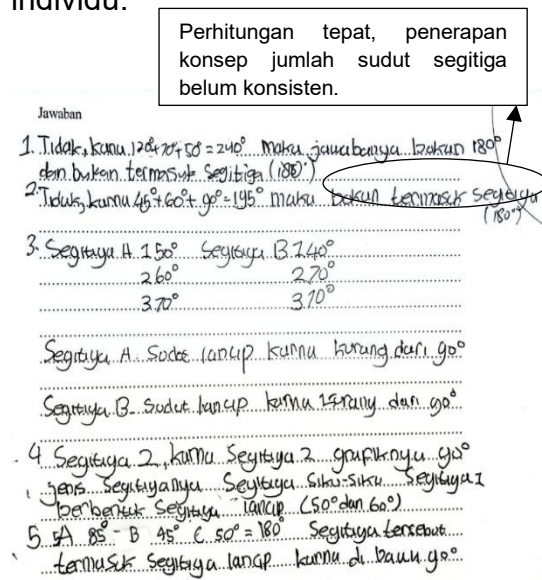 individu.
Perhitungan tepat, penerapan
konsep jumlah sudut segitiga
belum konsisten.
Jawaban
1. Tidak, karna 120°+70°+50° = 240° maka jawabanya bukan 180°
dan bukan termasuk segitiga (180°)
2. Tidak, karna 45°+60°+90°=195° maka bukan termasuk segitiga
(180°)
3. Segitiga A. 1 50° Segitiga B. 1 40°
2 60° 2 70°
3. 70° 3. 70°
Segitiga A. Sudut lancip karna kurang dari 90°
Segitiga B. Sudut lancip karna kurang dari 90°
4 Segitiga 2, karna Segitiga 2 90°
jenis Segitiganya Segitiga Siku-siku Segitiga 1
berbentuk Segitiga lancip (50° dan 60°)
5. A 85° B 45° C. 50° = 180° Segitiga tersebut
termasuk segitiga lancip karna di bawah 90°.